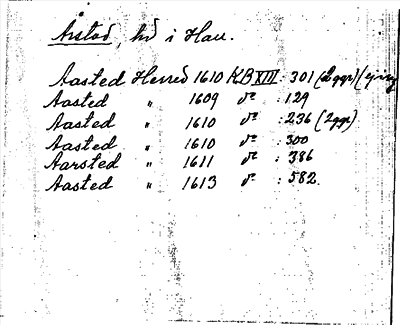 Årstad, hd i Hall.
Aasted Herred 1610 KB XIII : 301 (2 ggr)
Aasted " 1609 do : 129
Aasted " 1610 do : 236 (2 gg)
Aasted " 1610 do : 300
Aarsted " 1611 do : 386
Aasted " 1613 do : 582.